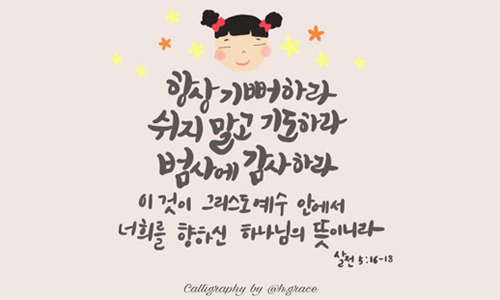 항상 기뻐하라
쉬지 말고 기도하라
범사에 감사하라
이것이 그리스도예수 안에서
너희를 향하신 하나님의 뜻이니라
살전 5:16-18
Calligraphy by @h.grace